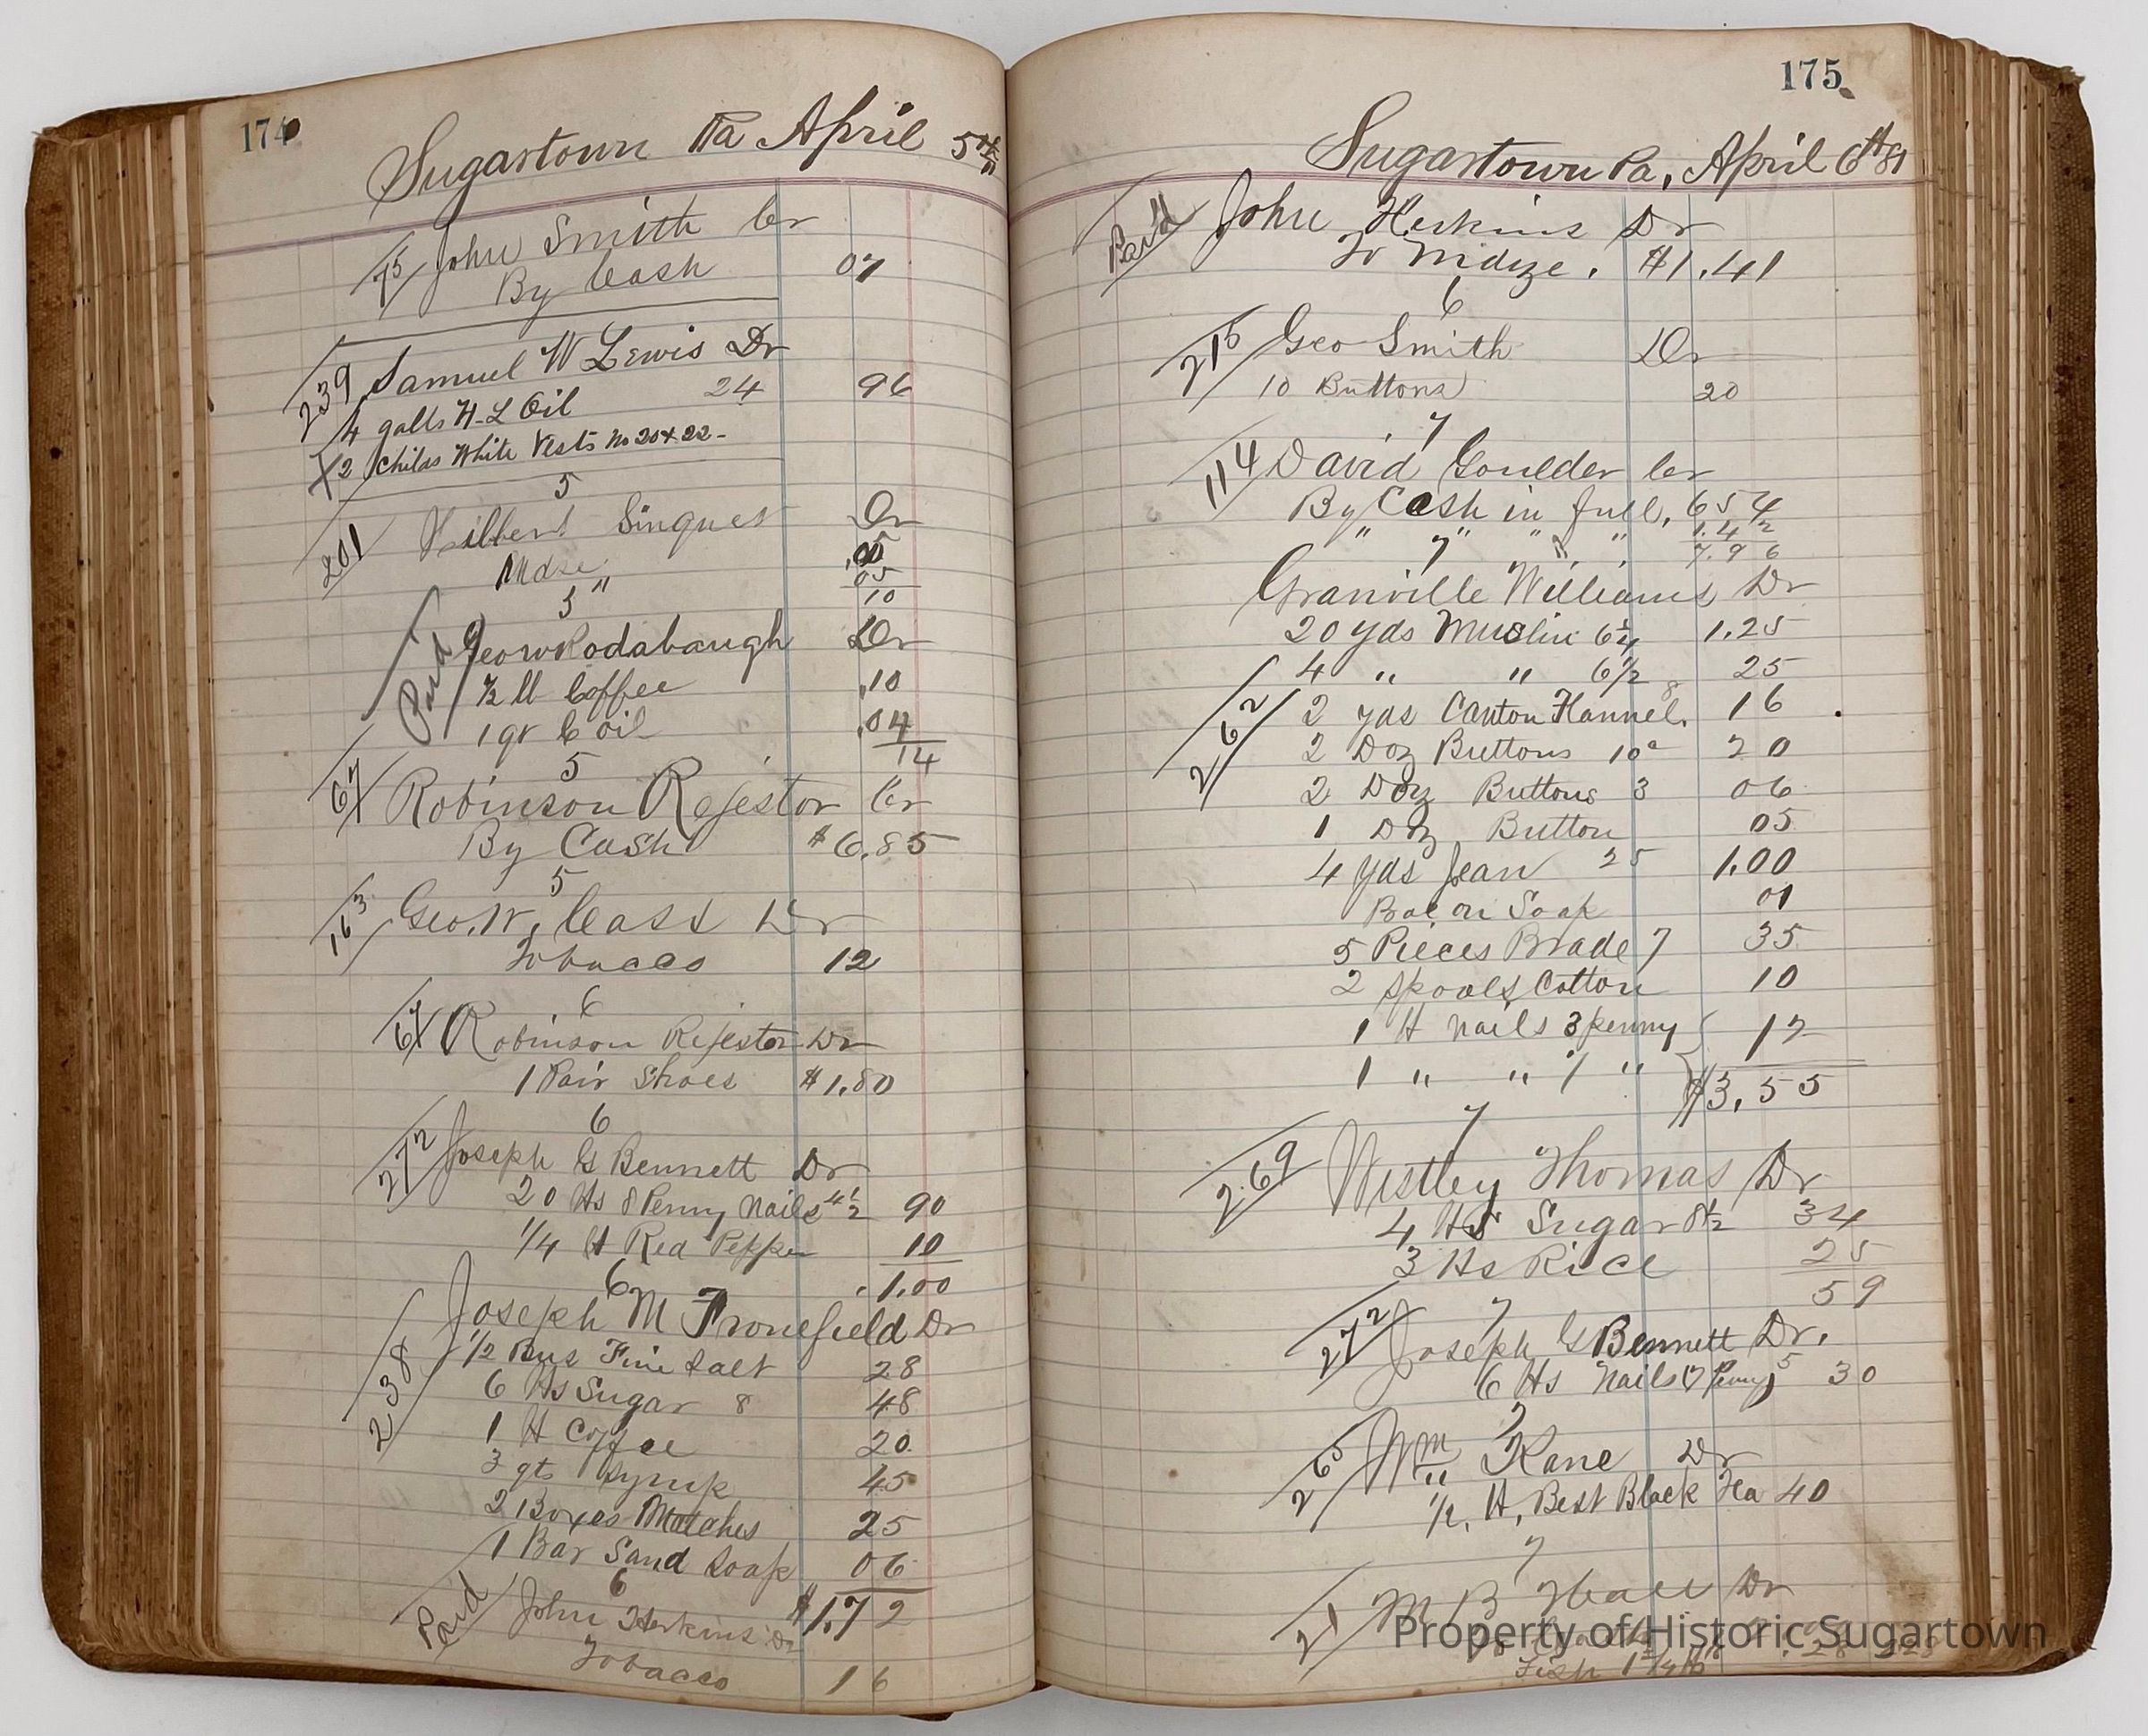 174
Sugartown Pa April 5th
75 John Smith Cr
By Cash 07
239 Samuel W Lewis Dr
4 galls H-L Oil 24 96
X 2 Childs White Vests No 20 & 22-
5
201 Hilbert Singuet Dr
Mdse .05
" 05
10
5
Paid Geo W Rodabaugh Dr
1/2 lb Coffee .10
1 qr C oil .04
14
5
67 Robinson Rejestor Cr
By Cash $6.85
5
163 Geo. W. Cass Dr
Tobacco 12
6
67 Robinson Rejestor Dr
1 Pair Shoes $1.80
6
272 Joseph G Bennett Dr
20 lbs 8 Penny Nails 4 1/2 90
1/4 lb Red Pepper 10
1.00
6
238 Joseph M Fronefield Dr
1/2 Bus Fine Salt 28
6 lbs Sugar 8 48
1 lb Coffee 20
3 qts Syrup 45
2 Boxes Matches 25
1 Bar Sand Soap 06
$1.72
6
Paid John Herkins Dr
Tobacco 16
175
Sugartown Pa, April 6th 81
Paid John Herkins Dr
To Mdze. $1.41
6
215 Geo Smith Dr
10 Buttons 20
7
114 David Goulder Cr
By Cash in full, 6 54
" " " " 1.42
7.96
7
Granville Williams Dr
20 yds Muslin 6 1/4 1.25
4 " " 6 1/2 25
262 2 yds Canton Flannel. 8 16
2 Doz Buttons 10c 20
2 Doz Buttons 3 06
1 Doz Button 05
4 yds Jean 25 1.00
Bal on Soap 01
5 Pieces Brade 7 35
2 Spools Cotton 10
1 lb Nails 3 penny 12
1 " " 7 "
$3.55
7
269 Westley Thomas Dr
4 lbs Sugar 8 1/2 34
3 lbs Rice 25
59
7
272 Joseph G Bennett Dr.
6 lbs Nails 7 Penny 5 30
7
265 Wm Kane Dr
1/2. lb. Best Black Tea 40
7
21 M B Dr
Fish
Property of Historic Sugartown